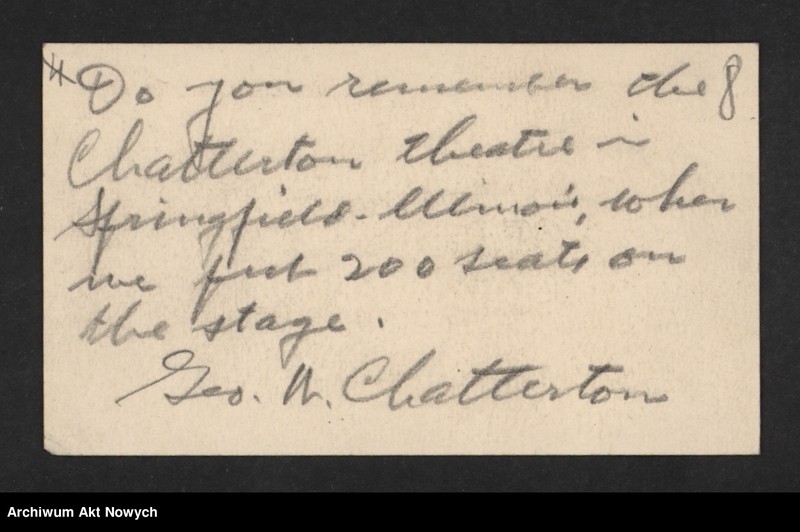 Do you remember the 8
Chatterton theatre in
Springfield - Illinois, when
we put 200 seats on
the stage.
Geo. W. Chatterton
Archiwum Akt Nowych